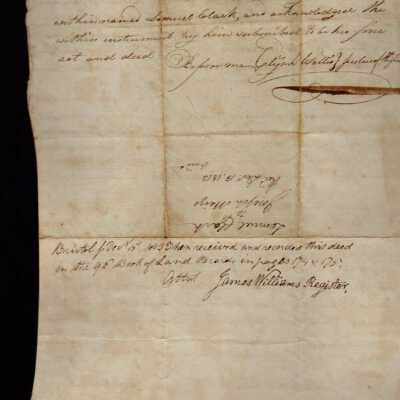 within named Lemuel Clark, and acknowledged the
within instrument by him subscribed to be his free
act and deed Before me Elijah
Lemuel Clark
to
Joseph
Bristol ss then received and recorded this deed
in the 92d Book of Land Records in pages 174 & 175.
Attest James Williams Register.